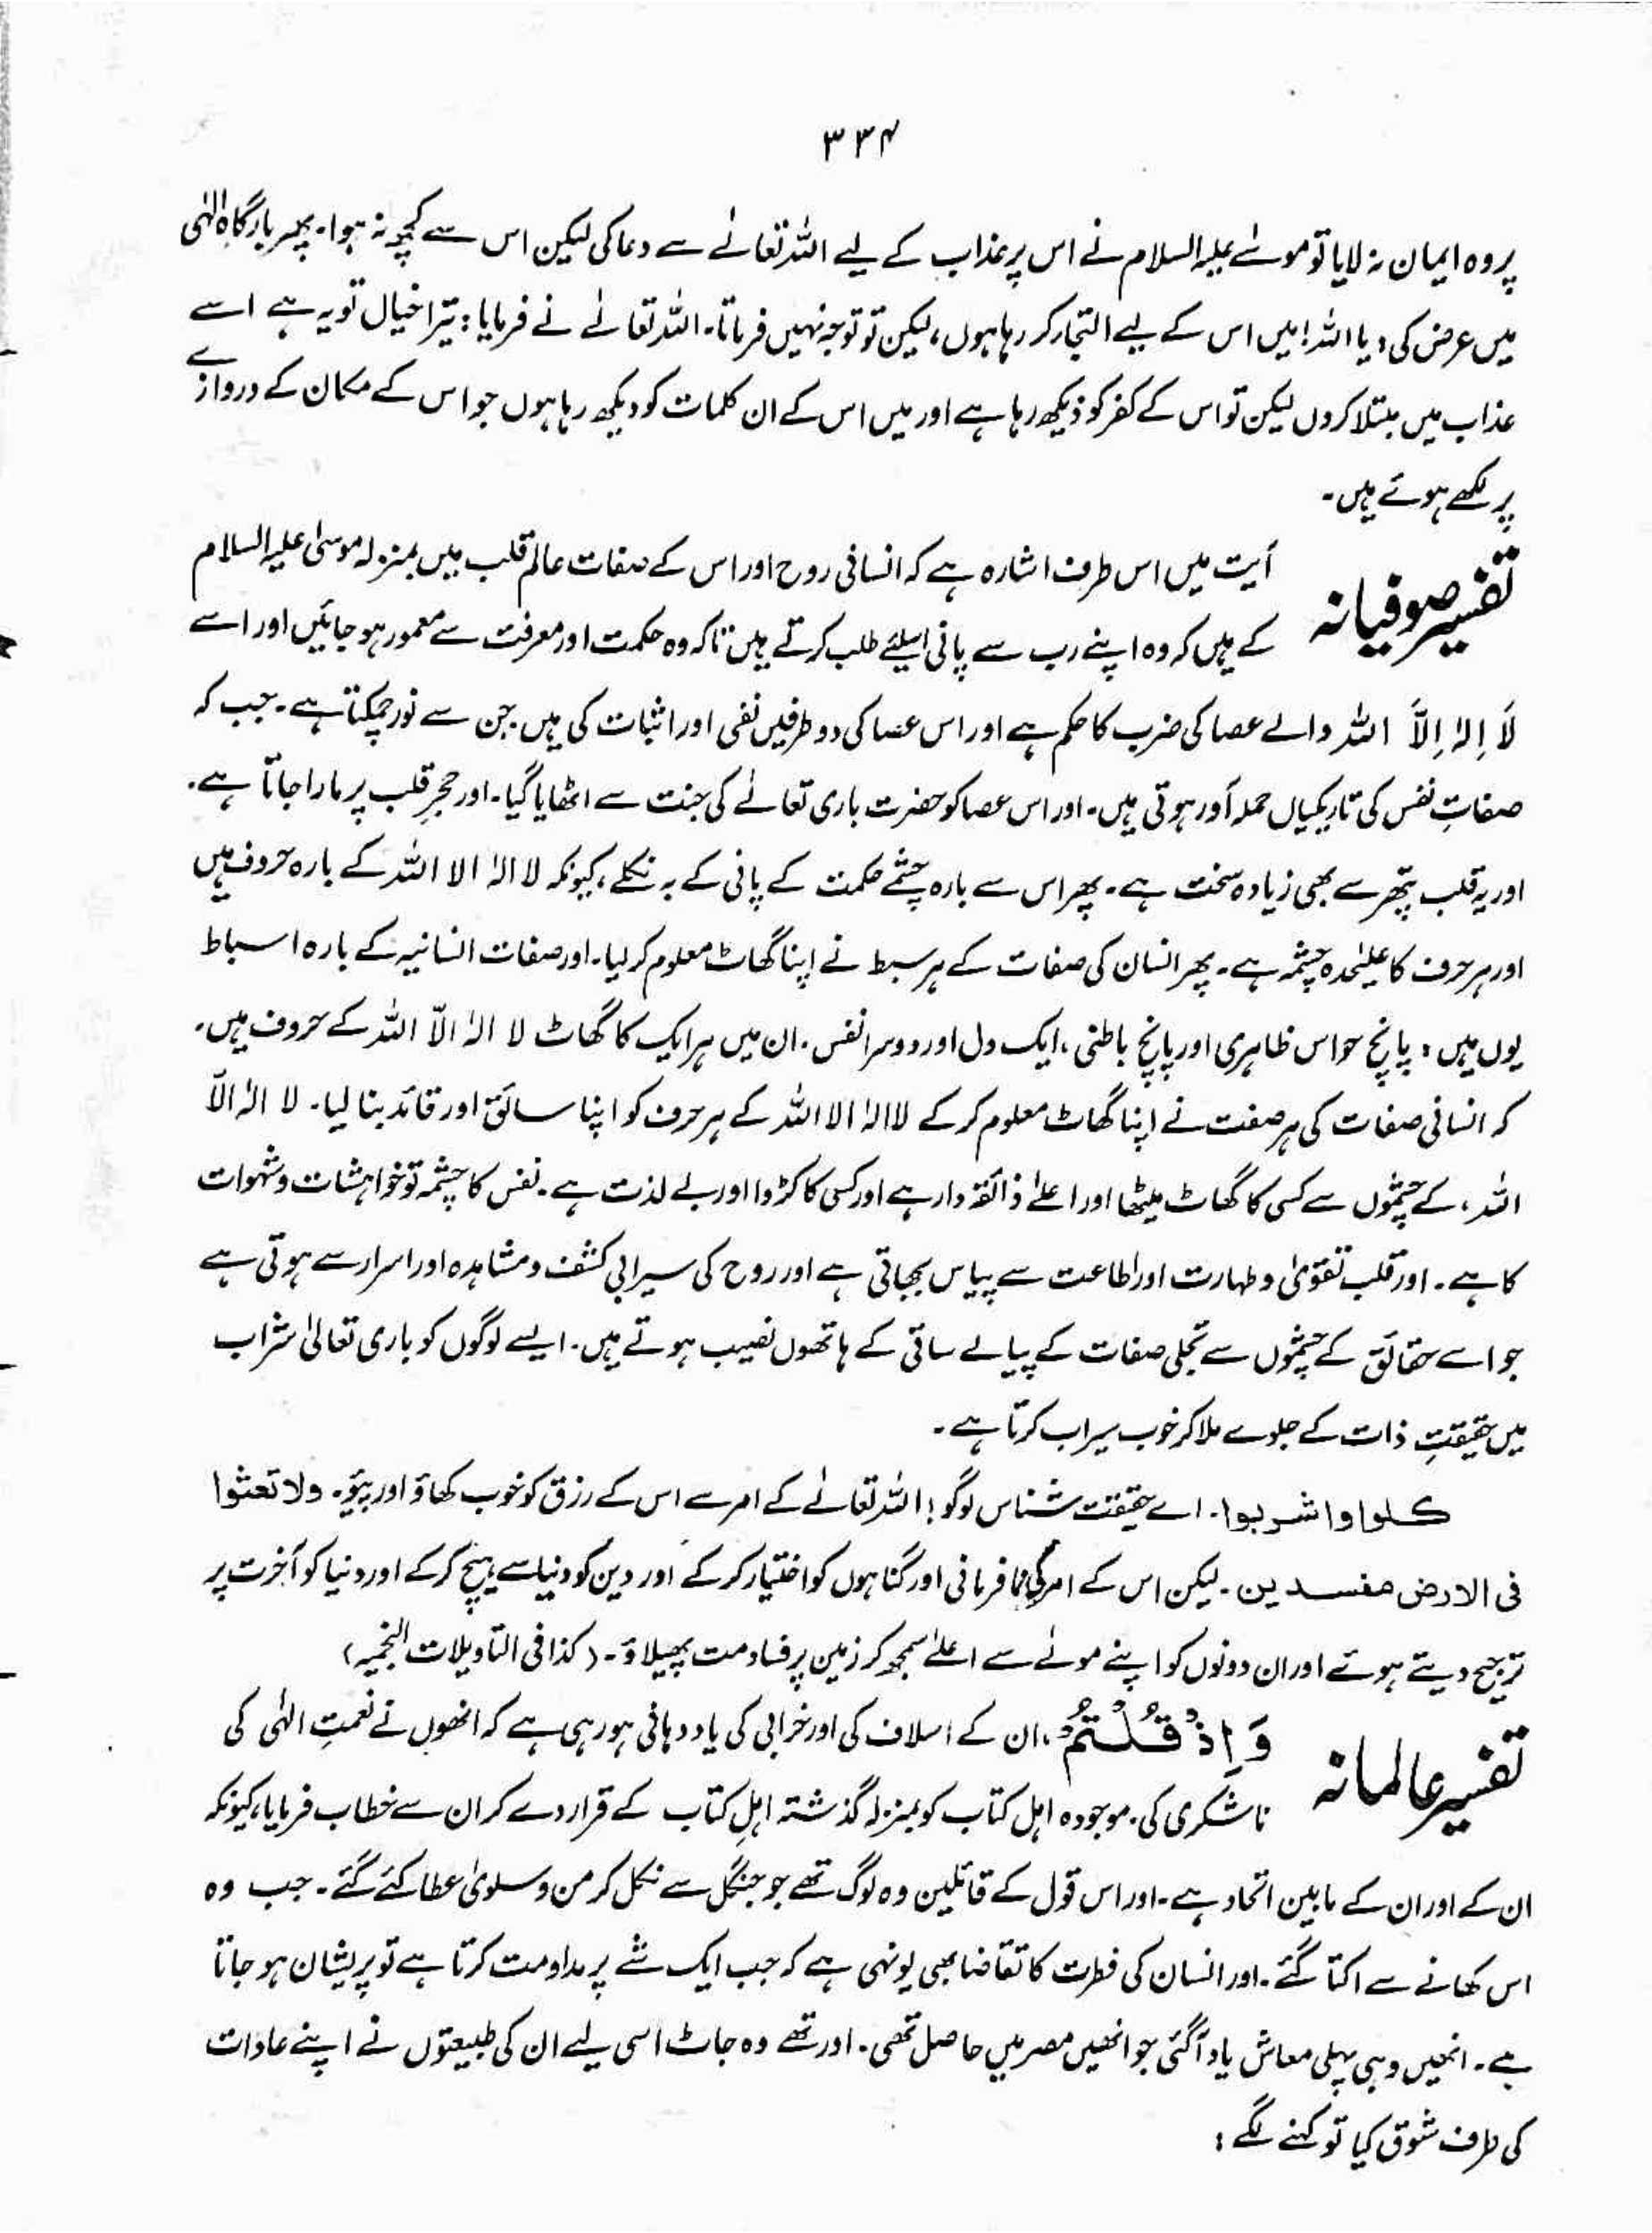 ۳۳۴
پر وہ ایمان نہ لایا تو موسےٰ علیہ السلام نے اس پر عذاب کے لیے اللہ تعالےٰ سے دعا کی لیکن اس سے کچھ نہ ہوا۔ پھر بارگاہِ الٰہی
میں عرض کی، یا اللہ! میں اس کے لیے التجا کر رہا ہوں، لیکن تو توجہ نہیں فرماتا۔ اللہ تعالےٰ نے فرمایا: تیرا خیال تو یہ ہے اسے
عذاب میں مبتلا کردوں لیکن تو اس کے کفر کو دیکھ رہا ہے اور میں اس کے ان کلمات کو دیکھ رہا ہوں جو اس کے مکان کے دروازے
پر لکھے ہوئے ہیں۔
تفسیر صوفیانہ آیت میں اس طرف اشارہ ہے کہ انسانی روح اور اس کے صفات عالم قلب میں بمنزلہ موسیٰ علیہ السلام
کے ہیں کہ وہ اپنے رب سے پانی اسلئے طلب کرتے ہیں تاکہ وہ حکمت اور معرفت سے معمور ہو جائیں اور اسے
لَا اِلٰہَ اِلَّا اللہ والے عصا کی ضرب کا حکم ہے اور اس عصا کی دو طرفیں نفی اور اثبات کی ہیں جن سے نور چمکتا ہے۔ جب کہ
صفاتِ نفس کی تاریکیاں حملہ آور ہوتی ہیں۔ اور اس عصا کو حضرت باری تعالےٰ کی جنت سے اٹھایا گیا۔ اور حجرِ قلب پر مارا جاتا ہے۔
اور یہ قلب پتھر سے بھی زیادہ سخت ہے۔ پھر اس سے بارہ چشمے حکمت کے پانی کے بہ نکلے، کیونکہ لا الٰہ الا اللہ کے بارہ حروف ہیں
اور ہر حرف کا علیٰحدہ چشمہ ہے۔ پھر انسان کی صفات کے ہر سبط نے اپنا گھاٹ معلوم کر لیا۔ اور صفات انسانیہ کے بارہ اسباط
یوں ہیں: پانچ حواس ظاہری اور پانچ باطنی، ایک دل اور دوسرا نفس۔ ان میں ہر ایک کا گھاٹ لا الٰہ الّا اللہ کے حروف ہیں۔
کہ انسانی صفات کی ہر صفت نے اپنا گھاٹ معلوم کر کے لا الٰہ الا اللہ کے ہر حرف کو اپنا سائق اور قائد بنا لیا۔ لا الٰہ الّا
اللہ، کے چشموں سے کسی کا گھاٹ میٹھا اور اعلےٰ ذائقہ دار ہے اور کسی کا کڑوا اور بے لذت ہے۔ نفس کا چشمہ تو خواہشات و شہوات
کا ہے۔ اور قلب تقویٰ و طہارت اور اطاعت سے پیاس بجھاتی ہے اور روح کی سیرابی کشف و مشاہدہ اور اسرار سے ہوتی ہے
جو اسے حقائق کے چشموں سے تجلی صفات کے پیالے ساقی کے ہاتھوں نصیب ہوتے ہیں۔ ایسے لوگوں کو باری تعالیٰ شراب
میں حقیقتِ ذات کے جلوے ملا کر خوب سیراب کرتا ہے۔
کلوا واشربوا۔ اے حقیقت شناس لوگو! اللہ تعالےٰ کے امر سے اس کے رزق کو خوب کھاؤ اور پیئو۔ ولا تعثوا
فی الارض مفسدین۔ لیکن اس کے امر کی نافرمانی اور گناہوں کو اختیار کر کے اور دین کو دنیا سے ہیچ کر کے اور دنیا کو آخرت پر
ترجیح دیتے ہوئے اور ان دونوں کو اپنے مولےٰ سے اعلےٰ سمجھ کر زمین پر فساد مت پھیلاؤ۔ (کذا فی التاویلات النجمیہ)
تفسیر عالمانہ وَاِذْ قُلْتُمْ، ان کے اسلاف کی اور خرابی کی یاد دہانی ہو رہی ہے کہ انھوں نے نعمتِ الٰہی کی
ناشکری کی۔ موجودہ اہل کتاب کو بمنزلہ گذشتہ اہلِ کتاب کے قرار دے کر ان سے خطاب فرمایا، کیونکہ
ان کے اور ان کے مابین اتحاد ہے۔ اور اس قول کے قائلین وہ لوگ تھے جو جنگل سے نکل کر من و سلویٰ عطا کئے گئے۔ جب وہ
اس کھانے سے اکتا گئے۔ اور انسان کی فطرت کا تقاضا بھی یونہی ہے کہ جب ایک شے پر مداومت کرتا ہے تو پریشان ہو جاتا
ہے۔ انھیں وہی پہلی معاش یاد آگئی جو انھیں مصر میں حاصل تھی۔ اور تھے وہ جاٹ اسی لیے ان کی طبیعتوں نے اپنے عادات
کی طرف شوق کیا تو کہنے لگے: